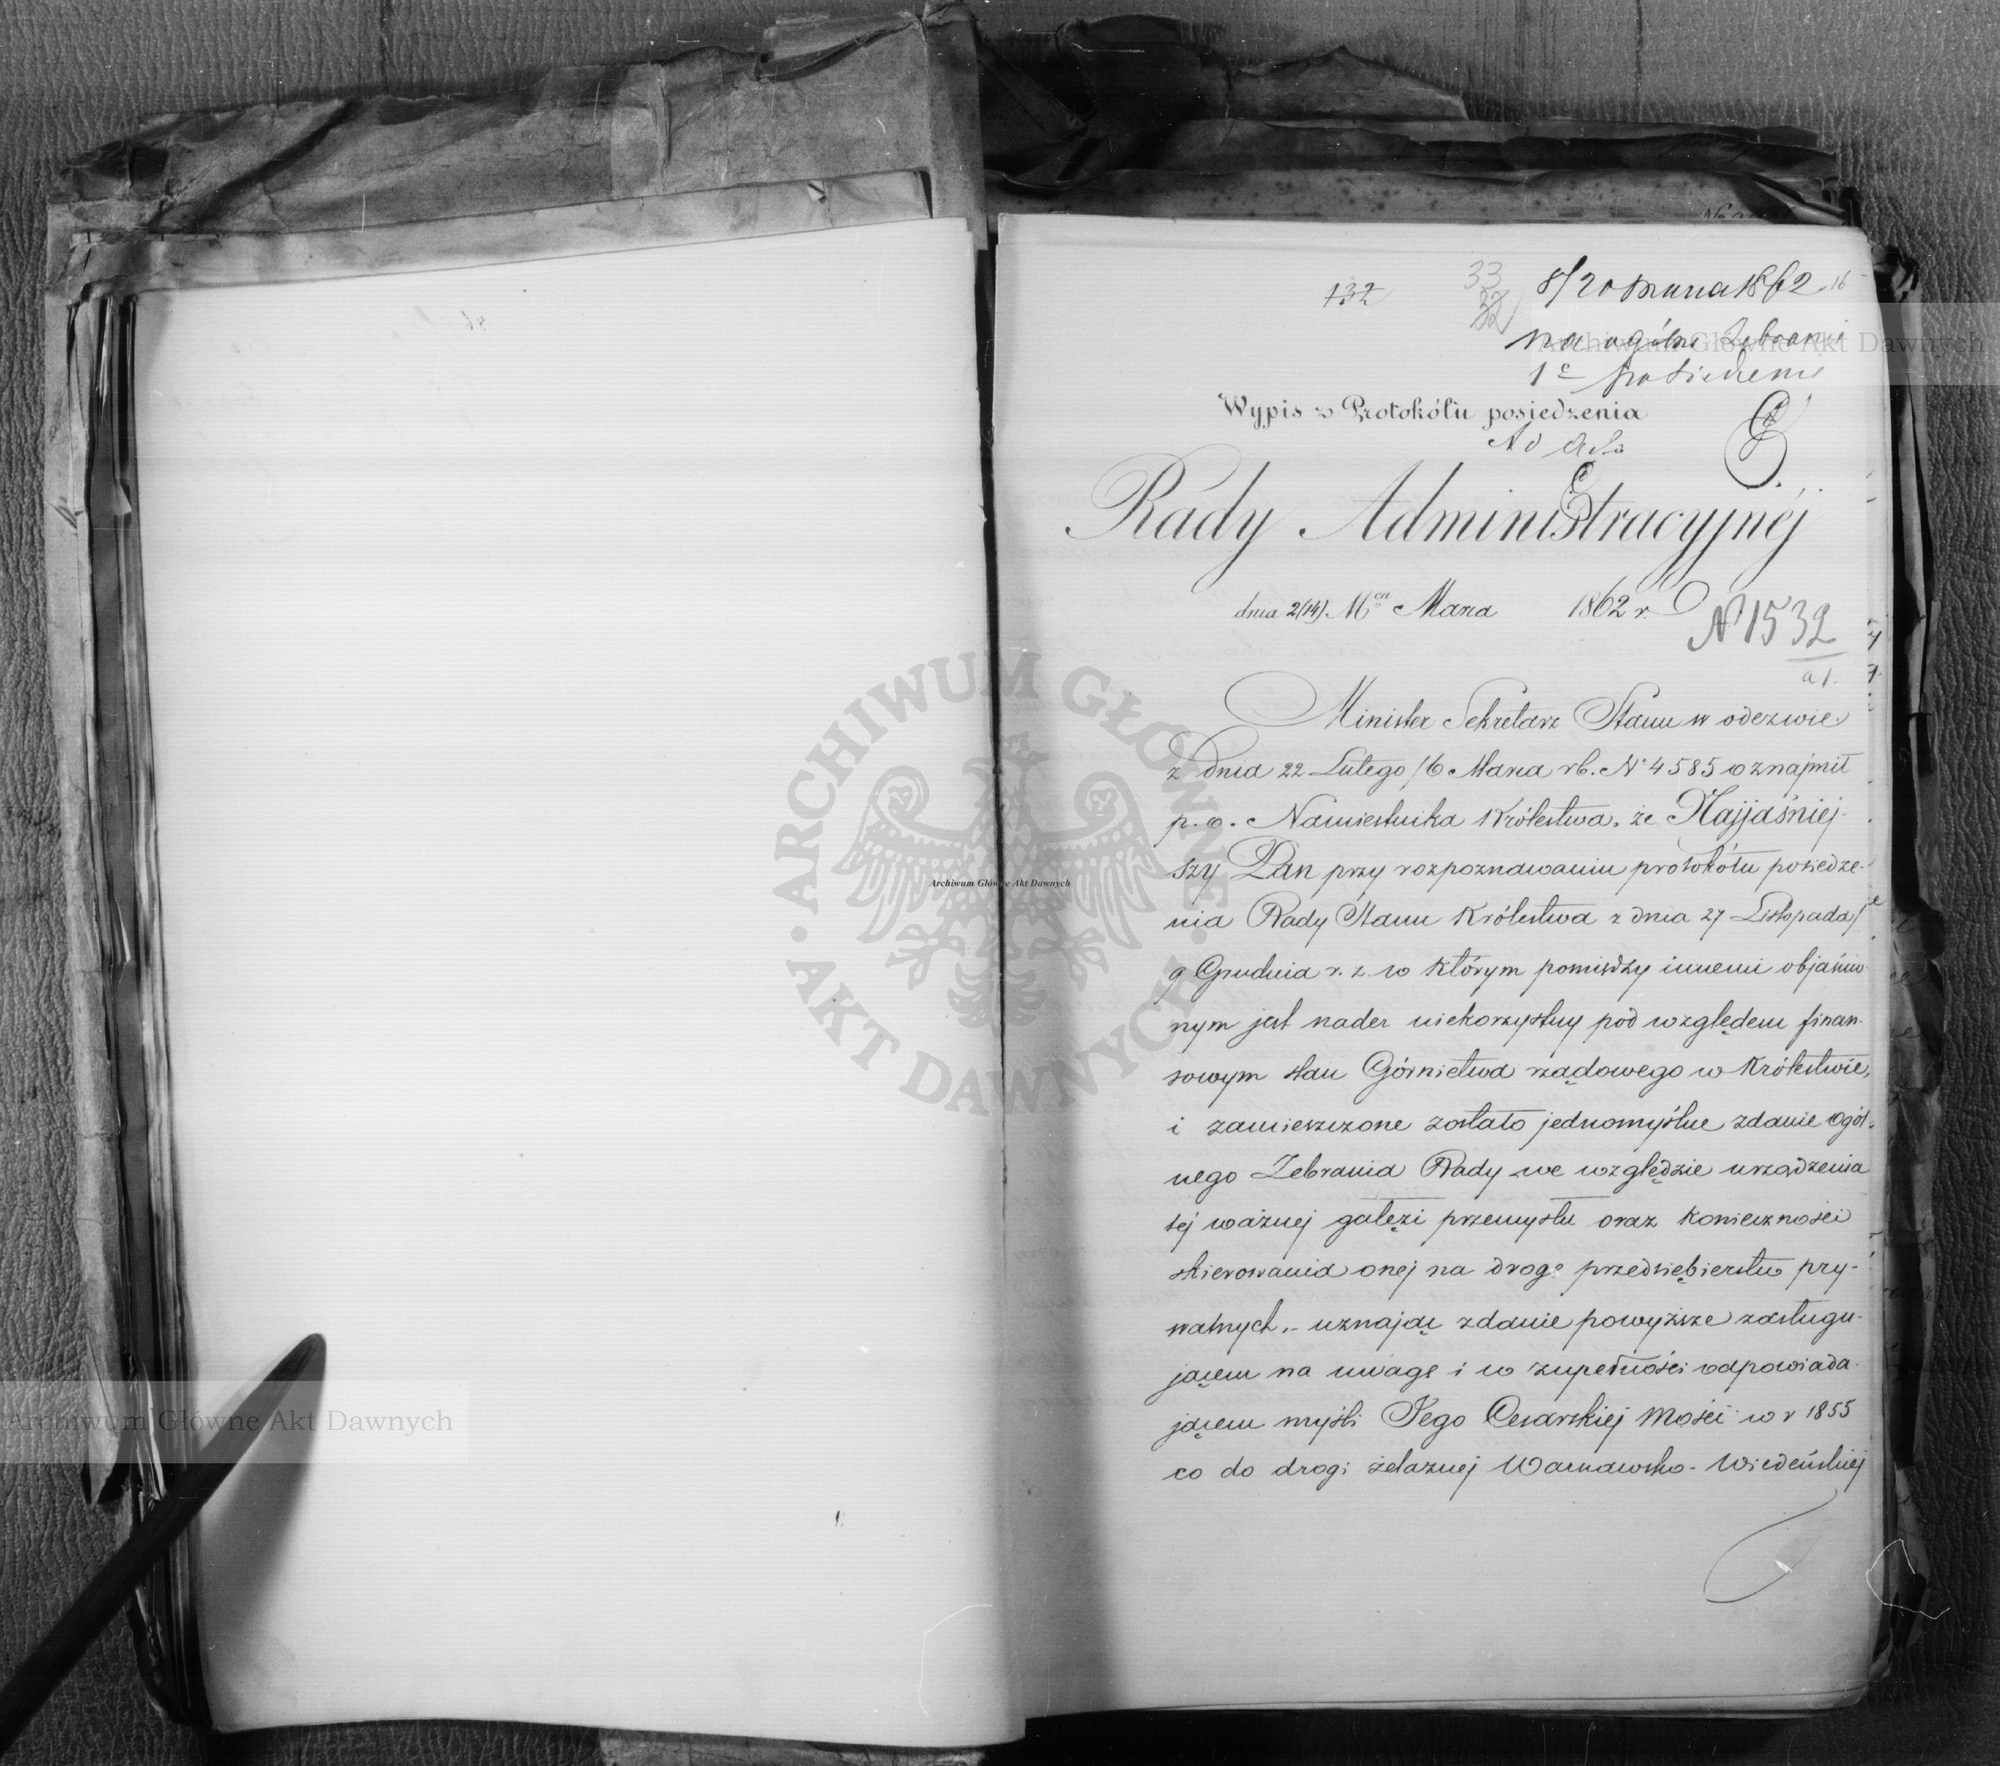 132
33
32
8/20 Marca 1862
16
na ogólne Zebranie
1e posiedzenie
Wypis z Protokółu posiedzenia
Ad acta
Rady Administracyjnéj
dnia 2(14) Mca Marca 1862 r.
N 1532
a 1.
Minister Sekretarz Stanu w odezwie
z dnia 22 Lutego /6 Marca rb. N. 4585 oznajmił
p. o. Namiestnika Królestwa, że Najjaśniej-
szy Pan przy rozpoznawaniu protokółu posiedze-
nia Rady Stanu Królestwa z dnia 27 Listopada/
9 Grudnia r. z. w którym pomiędzy innemi objaśnio-
nym jest nader niekorzystny pod względem finan-
sowym stan Górnictwa rządowego w Królestwie,
i zamieszczone zostało jednomyślne zdanie Ogól-
nego Zebrania Rady we względzie urządzenia
téj ważnej gałęzi przemysłu oraz konieczności
skierowania onej na drogę przedsiębierstw pry-
watnych, - uznając zdanie powyższe zasługu-
jącem na uwagę i w zupełności odpowiada-
jącem myśli Jego Cesarskiej Mości w r 1855
co do drogi żelaznej Warszawsko-Wiedeńskiej
Archiwum Główne Akt Dawnych
Archiwum Główne Akt Dawnych
Archiwum Główne Akt Dawnych
· ARCHIWUM GŁÓWNE · AKT DAWNYCH